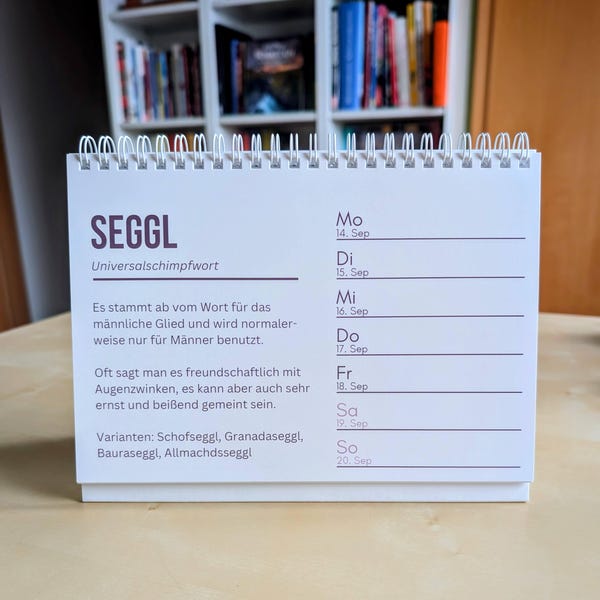 SEGGL
Universalschimpfwort
Es stammt ab vom Wort für das
männliche Glied und wird normaler-
weise nur für Männer benutzt.
Oft sagt man es freundschaftlich mit
Augenzwinken, es kann aber auch sehr
ernst und beißend gemeint sein.
Varianten: Schofseggl, Granadaseggl,
Bauraseggl, Allmachdsseggl
Mo
14. Sep
Di
15. Sep
Mi
16. Sep
Do
17. Sep
Fr
18. Sep
Sa
19. Sep
So
20. Sep